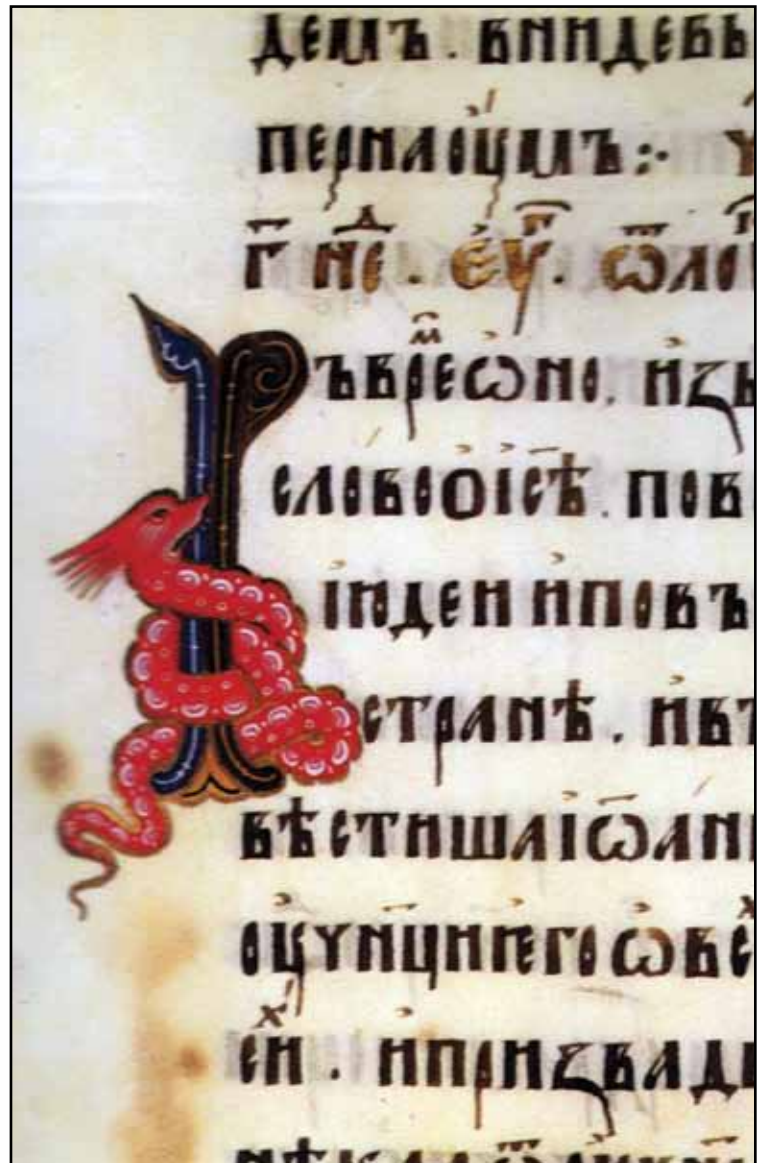 демъ . внидевь
пернаоумъ :·
г҃ не҃д . еѵ҃г . ѿ ло
Въ врем ѡно . изь
слово о і҃сѣ . пов
іюдеи и повъ
странѣ . и въ
вѣстиша іѡан
оу учн҃ци него ѡ вс
сих . и призва д